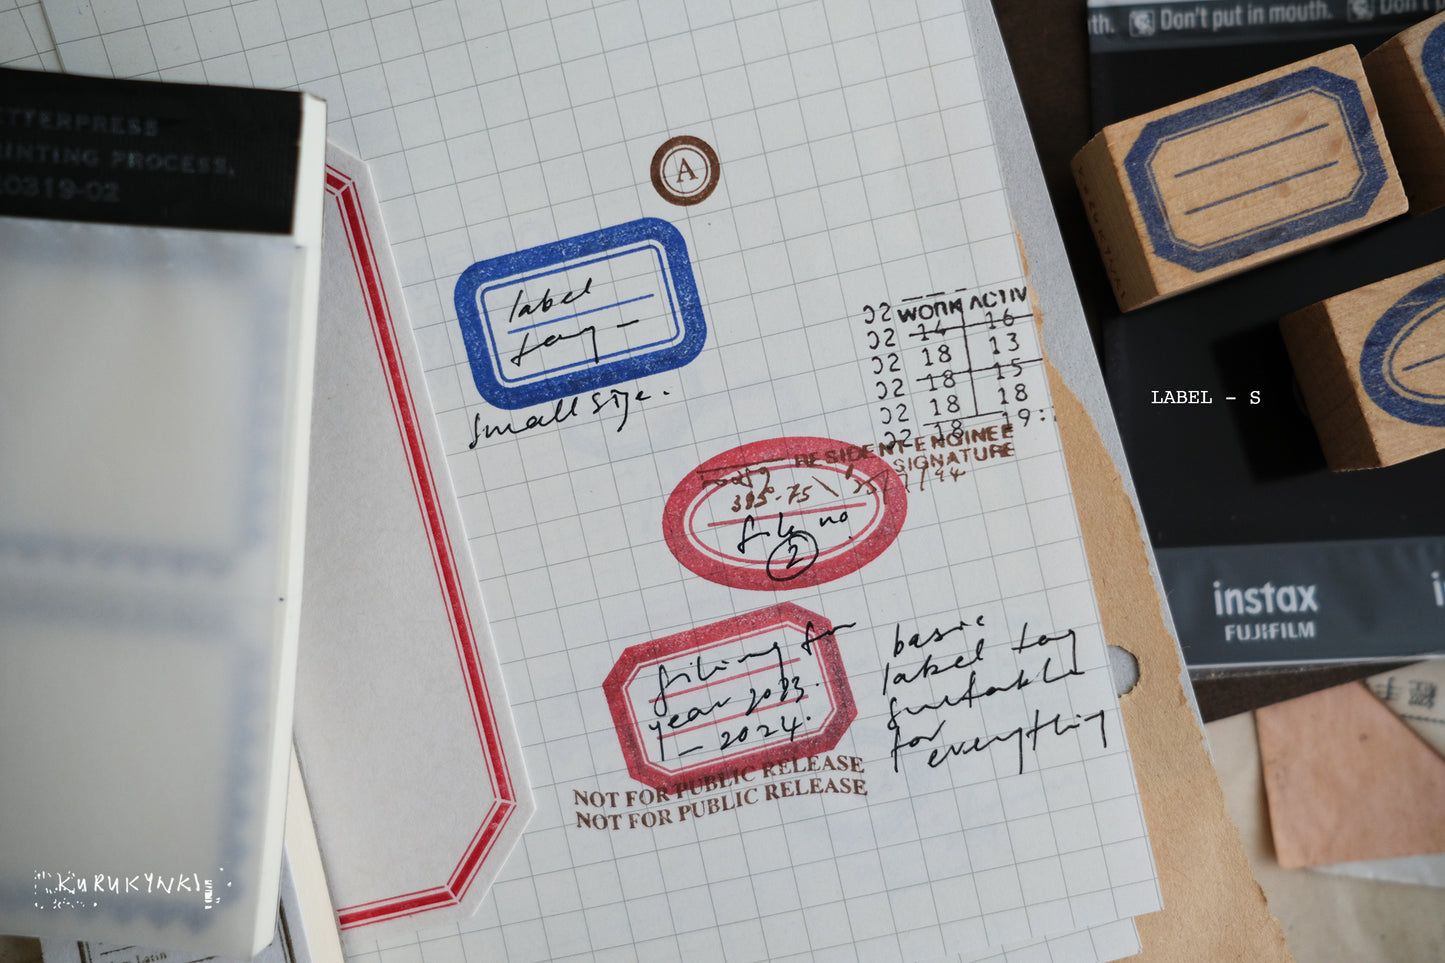 Don't put in mouth.
Don't p
TTERPRESS
INTING PROCESS,
0319-02
A
label
tag –
small size.
WORK ACTIV
02 14 16
02 18 13
02 18 15
02 18 18
02 18 19:
RESIDENT ENGINEE
SIGNATURE
395°-75
file no.
2
filing for
year 2023.
– 2024.
NOT FOR PUBLIC RELEASE
NOT FOR PUBLIC RELEASE
basic
label tag
suitable
for
everything
LABEL – S
instax
FUJIFILM
KURUKYNKI